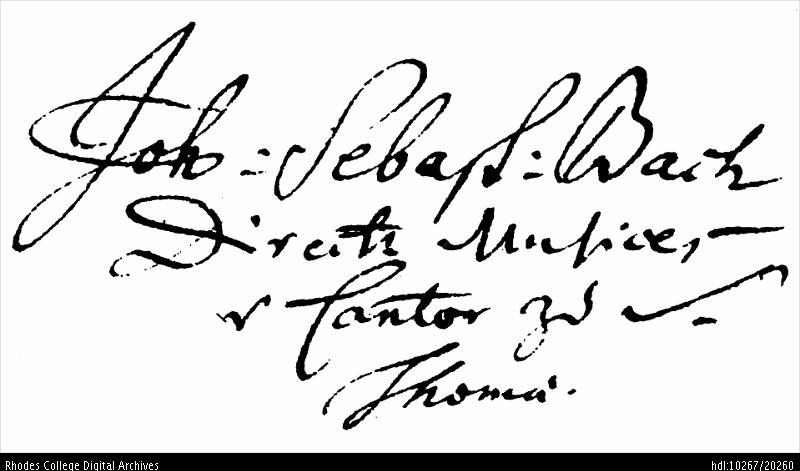 Joh: Sebast: Bach
Direct: Musices,
Cantor zu
Thomä.
Rhodes College Digital Archives
hdl:10267/20260